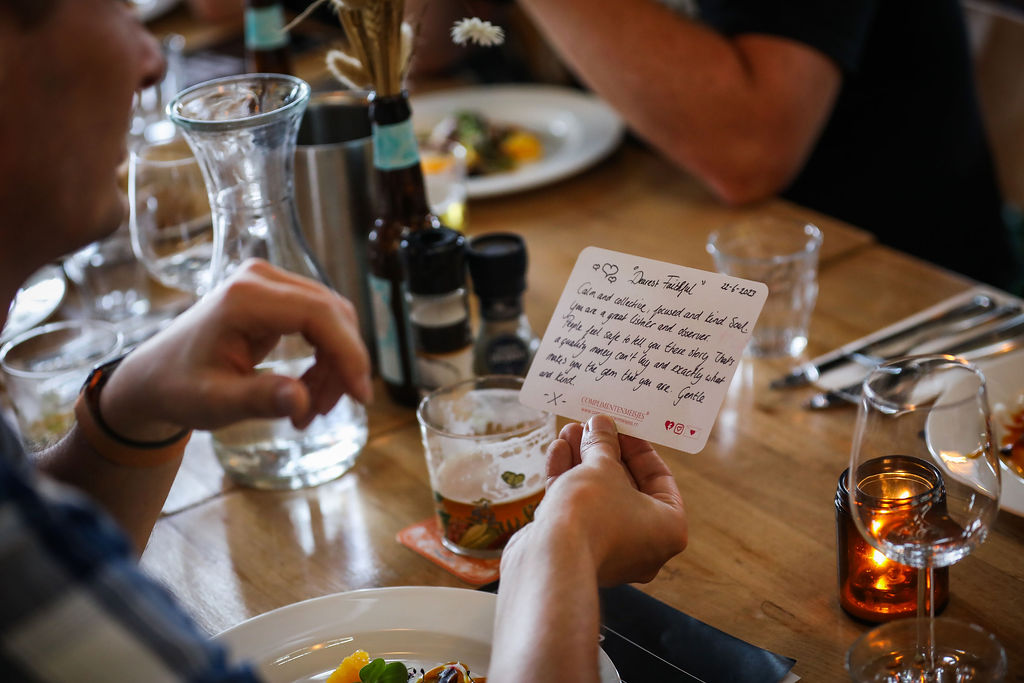 "Dearest Faithful" 22-6-2023
Calm and collective, focused and kind Soul
You are a great listner and observer.
People feel safe to tell you there story. That's
a quality money can't buy and exactly what
makes you the gem that you are. Gentle
and kind.
-X-
COMPLIMENTENMEISJES®